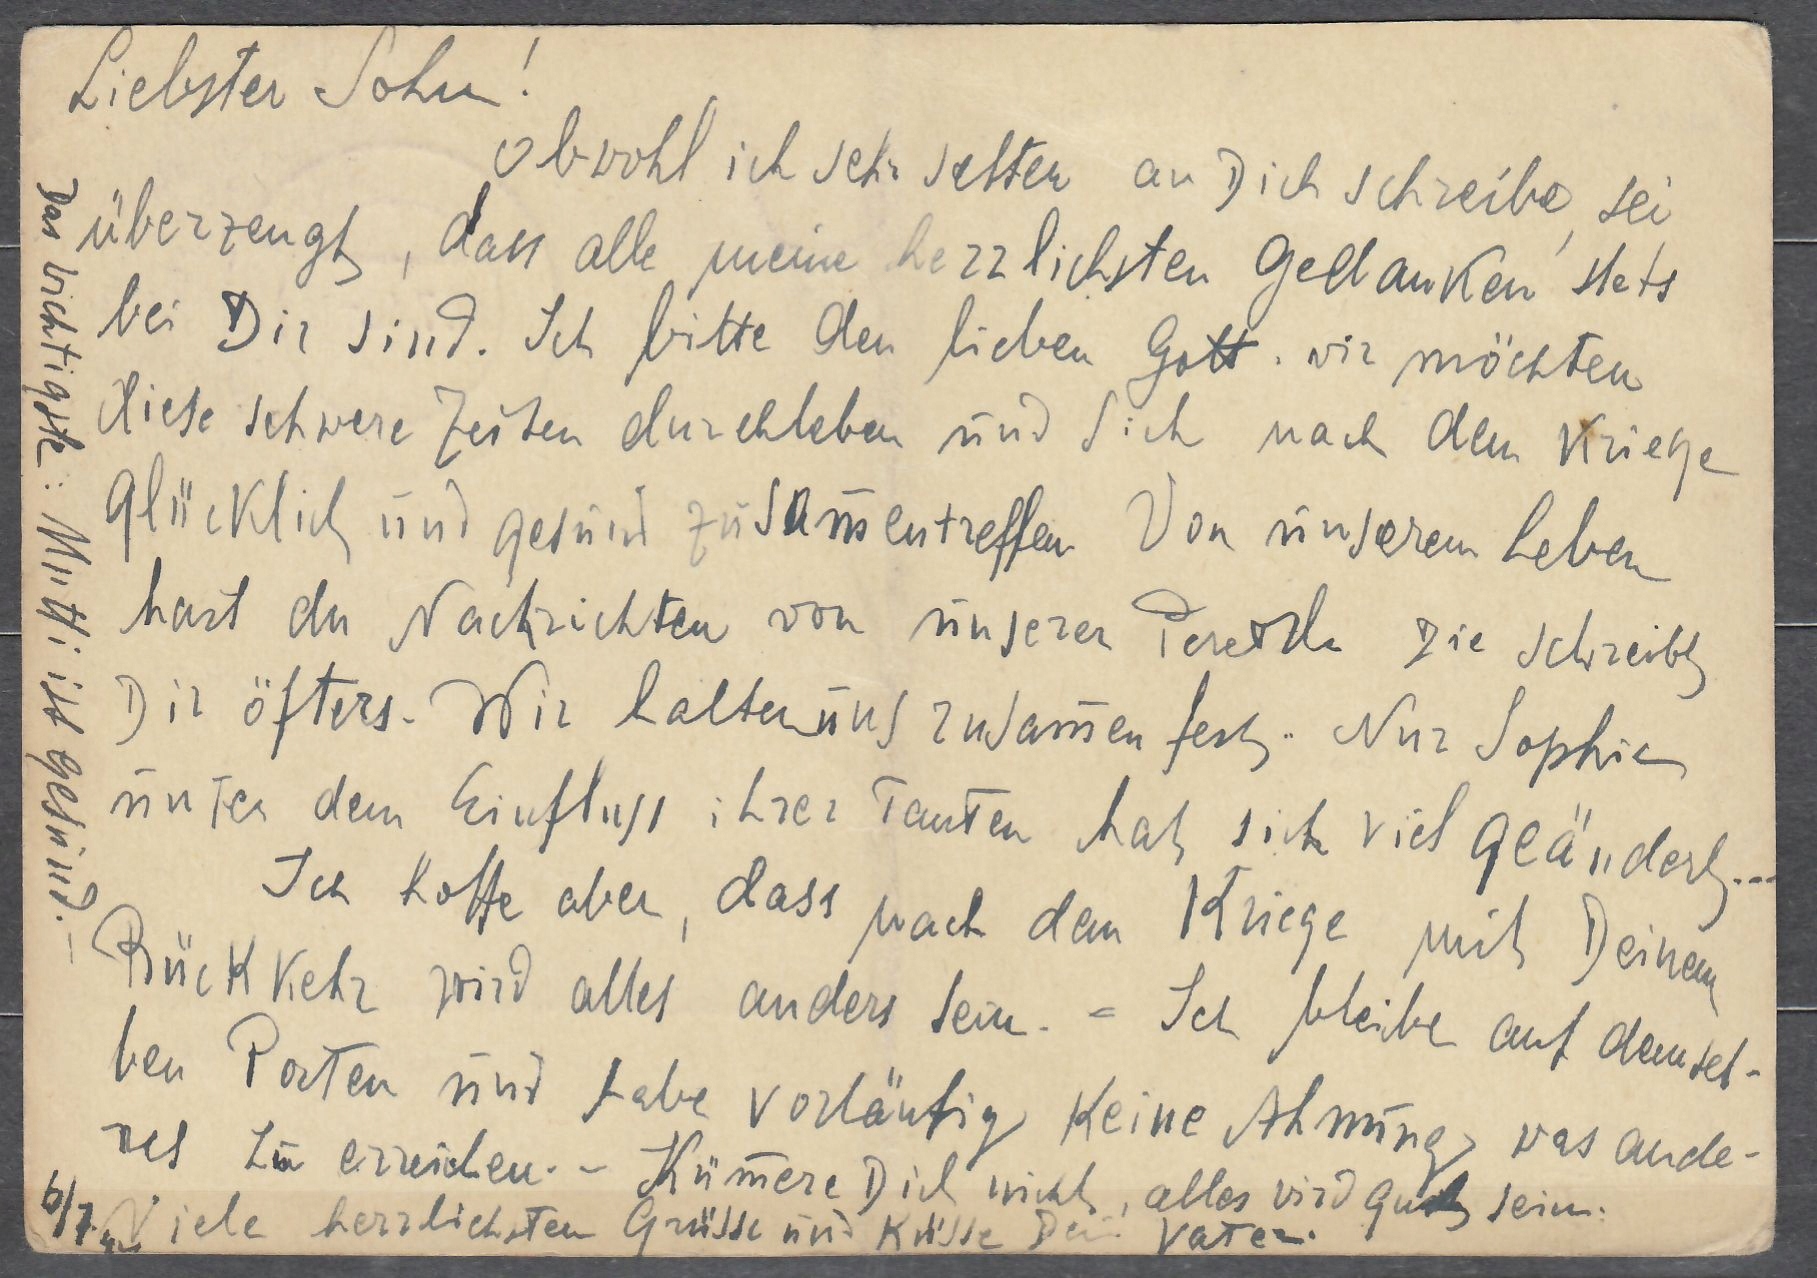 Liebster Sohn!
obwohl ich sehr selten an Dich schreibe, sei
überzeugt, dass alle meine herzlichsten Gedanken stets
bei Dir sind. Ich bitte den lieben Gott. wir möchten
diese schwere Zeiten durchleben und Sich nach dem Kriege
glücklich und gesund zusam̄entreffen Von unserem Leben
hast du Nachrichten von unserer die schreibt
Dir öfters. Wir halten uns zusam̄en fest. Nur Sophie
unter dem Einfluss ihrer Tanten hat sich viel geändert...
Ich hoffe aber, dass nach dem Kriege mit Deinem
Rückkehr wird alles anders sein. = Ich bleibe auf demsel-
ben Posten und habe vorläufig keine Ahnung was ande-
res zu erreichen. - Küm̄ere Dich nicht, alles wird gut sein.
Viele herzlichsten Grüsse und Küsse Dein Vater.
6/7.
Das wichtigste: Mutti ist gesund. -